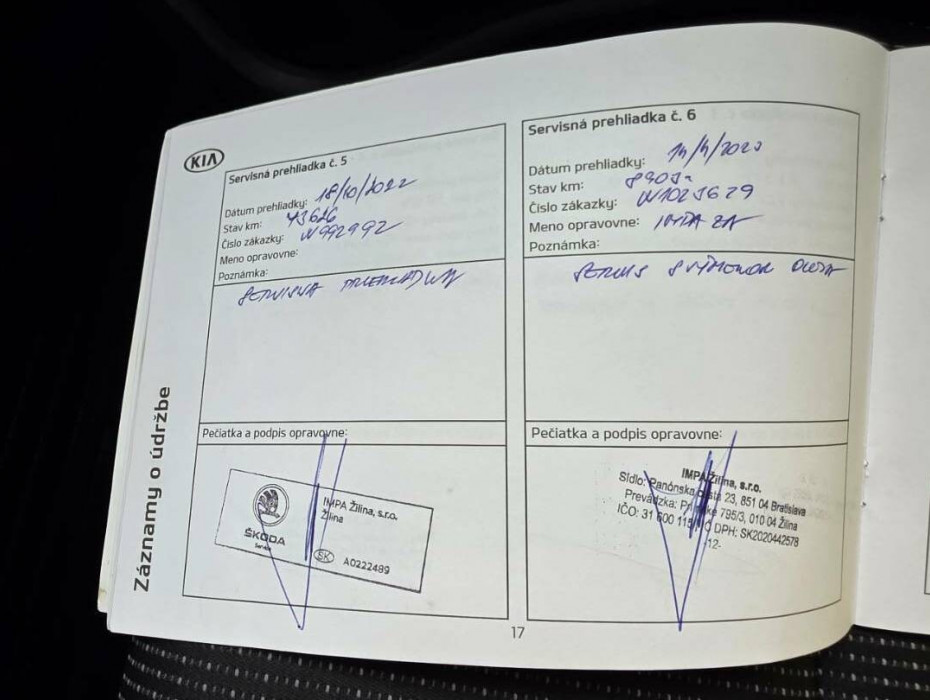 KIA
Servisná prehliadka č. 5
Dátum prehliadky: 18/10/2022
Stav km: 43626
Číslo zákazky: W992992
Meno opravovne:
Poznámka:
SERVISNA PREHLIADKA
Pečiatka a podpis opravovne:
ŠKODA
Service
IMPA Žilina, s.r.o.
Žilina
SK A0222489
Servisná prehliadka č. 6
Dátum prehliadky:
Stav km:
Číslo zákazky: W1023629
Meno opravovne: IMPA ZA
Poznámka:
SERVIS S VÝMENOU OLEJA
Pečiatka a podpis opravovne:
IMPA Žilina, s.r.o.
Sídlo: Panónska 23, 851 04 Bratislava
Prevádzka: 795/3, 010 04 Žilina
IČO: 31 600 DPH: SK2020442578
-12-
Záznamy o údržbe
17